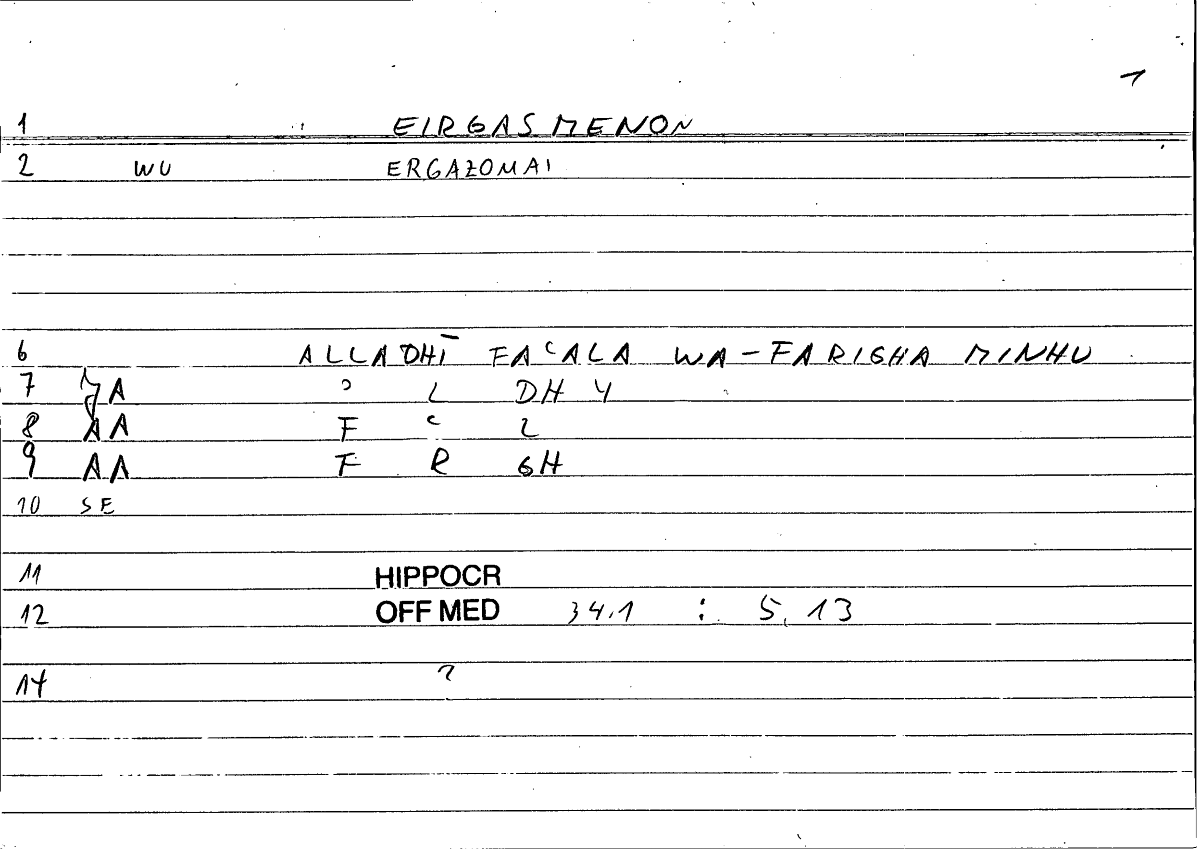 1
1 EIRGASMENON
2 WU ERGAZOMAI
6 ALLADHĪ FAʿALA WA-FARIGHA MINHU
7 JA ʾ L DH Y
8 AA F ʿ L
9 AA F R GH
10 SE
11 HIPPOCR
12 OFF MED 34.1 : 5, 13
14 ?